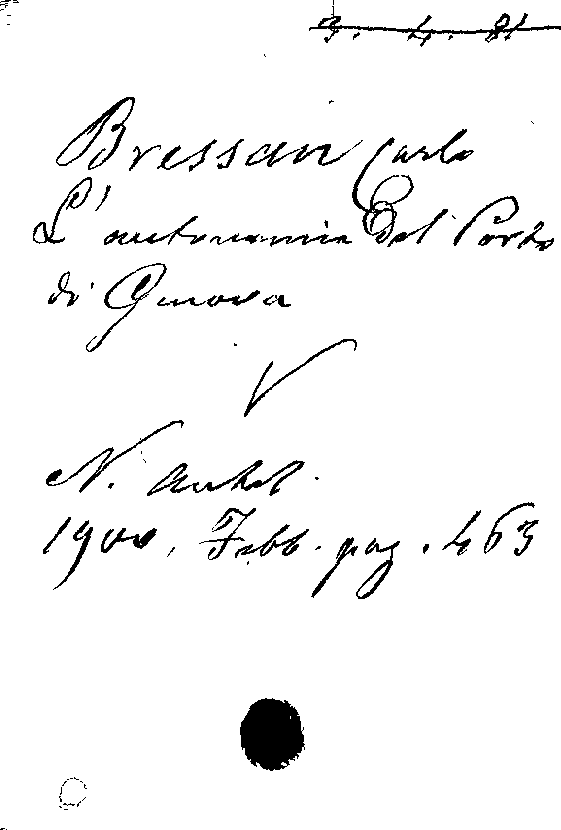 3. 4. 81
Bressan Carlo
L'autonomia del Porto
di Genova
V
N. Antol.
1900, Febb. pag. 463